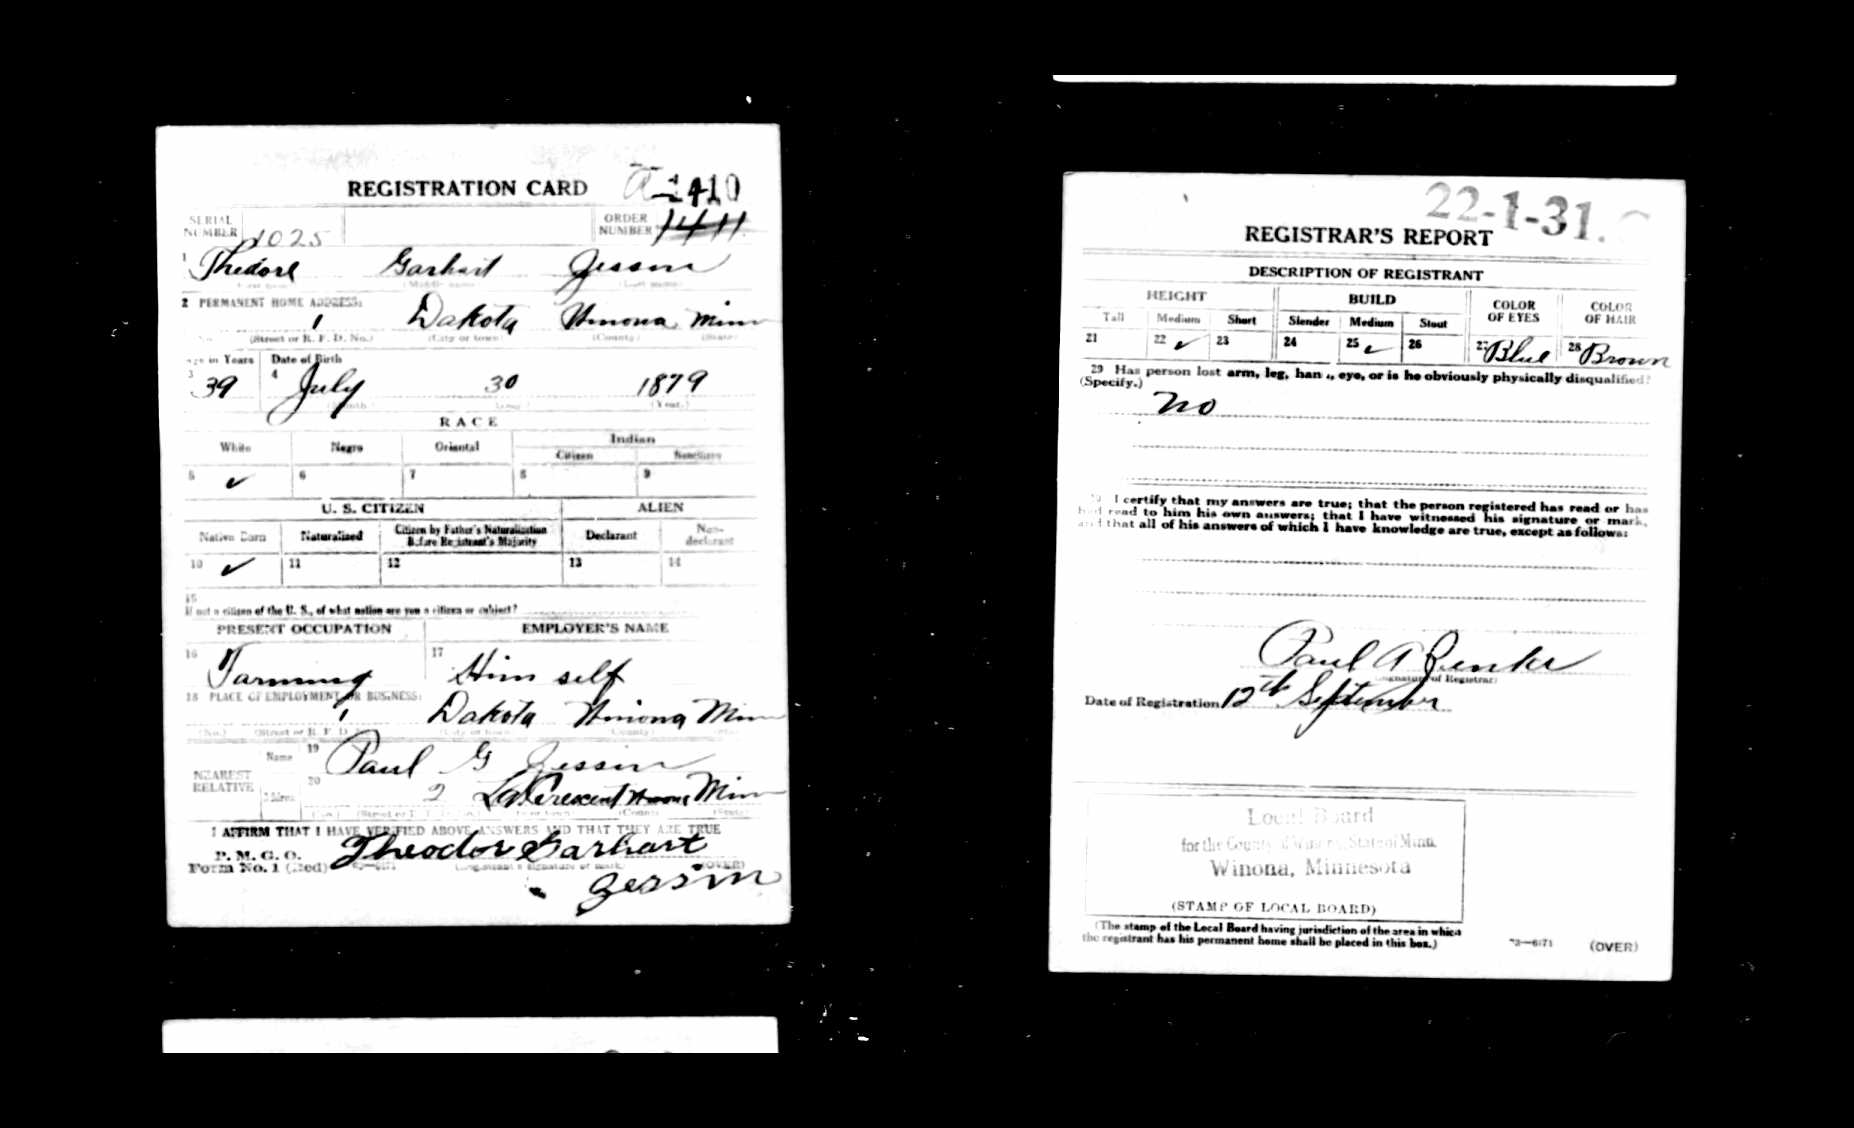 REGISTRATION CARD
A-1410
SERIAL NUMBER 1025
ORDER NUMBER 1411
1 Thedore Garhart Jessin
(Middle name) (Last name)
2 PERMANENT HOME ADDRESS:
1 Dakota Winona Minn
(Street or R. F. D. No.) (City or town) (County) (State)
Age in Years Date of Birth
3 39 4 July 30 1879
(Month) (Day) (Year.)
RACE
White Negro Oriental Indian
Citizen
5 ✓ 6 7 8 9
U. S. CITIZEN ALIEN
Native Born Naturalized Citizen by Father's Naturalization Before Registrant's Majority Declarant Non-declarant
10 ✓ 11 12 13 14
15
If not a citizen of the U. S., of what nation are you a citizen or subject?
PRESENT OCCUPATION EMPLOYER'S NAME
16 Farming 17 Him self
18 PLACE OF EMPLOYMENT OR BUSINESS:
1 Dakota Winona Minn
(No.) (Street or R. F. D.) (City or town) (County)
NEAREST RELATIVE
Name 19 Paul G Jessin
Address 20 2 La Crescent Winona Minn
(County) (State)
I AFFIRM THAT I HAVE VERIFIED ABOVE ANSWERS AND THAT THEY ARE TRUE
P. M. G. O.
Form No. 1 (Red) Theodor Garhart
(Registrant's signature or mark) (OVER)
Jessin
22-1-31. C
REGISTRAR'S REPORT
DESCRIPTION OF REGISTRANT
HEIGHT BUILD COLOR OF EYES COLOR OF HAIR
Tall Medium Short Slender Medium Stout
21 22 ✓ 23 24 25 ✓ 26 27 Blue 28 Brown
29 Has person lost arm, leg, hand, eye, or is he obviously physically disqualified?
(Specify.)
No
30 I certify that my answers are true; that the person registered has read or has
had read to him his own answers; that I have witnessed his signature or mark,
and that all of his answers of which I have knowledge are true, except as follows:
Paul A
(Signature of Registrar)
Date of Registration 12th September
Local Board
for the County of Winona, State of Minn.
Winona, Minnesota
(STAMP OF LOCAL BOARD)
(The stamp of the Local Board having jurisdiction of the area in which
the registrant has his permanent home shall be placed in this box.)
(OVER)